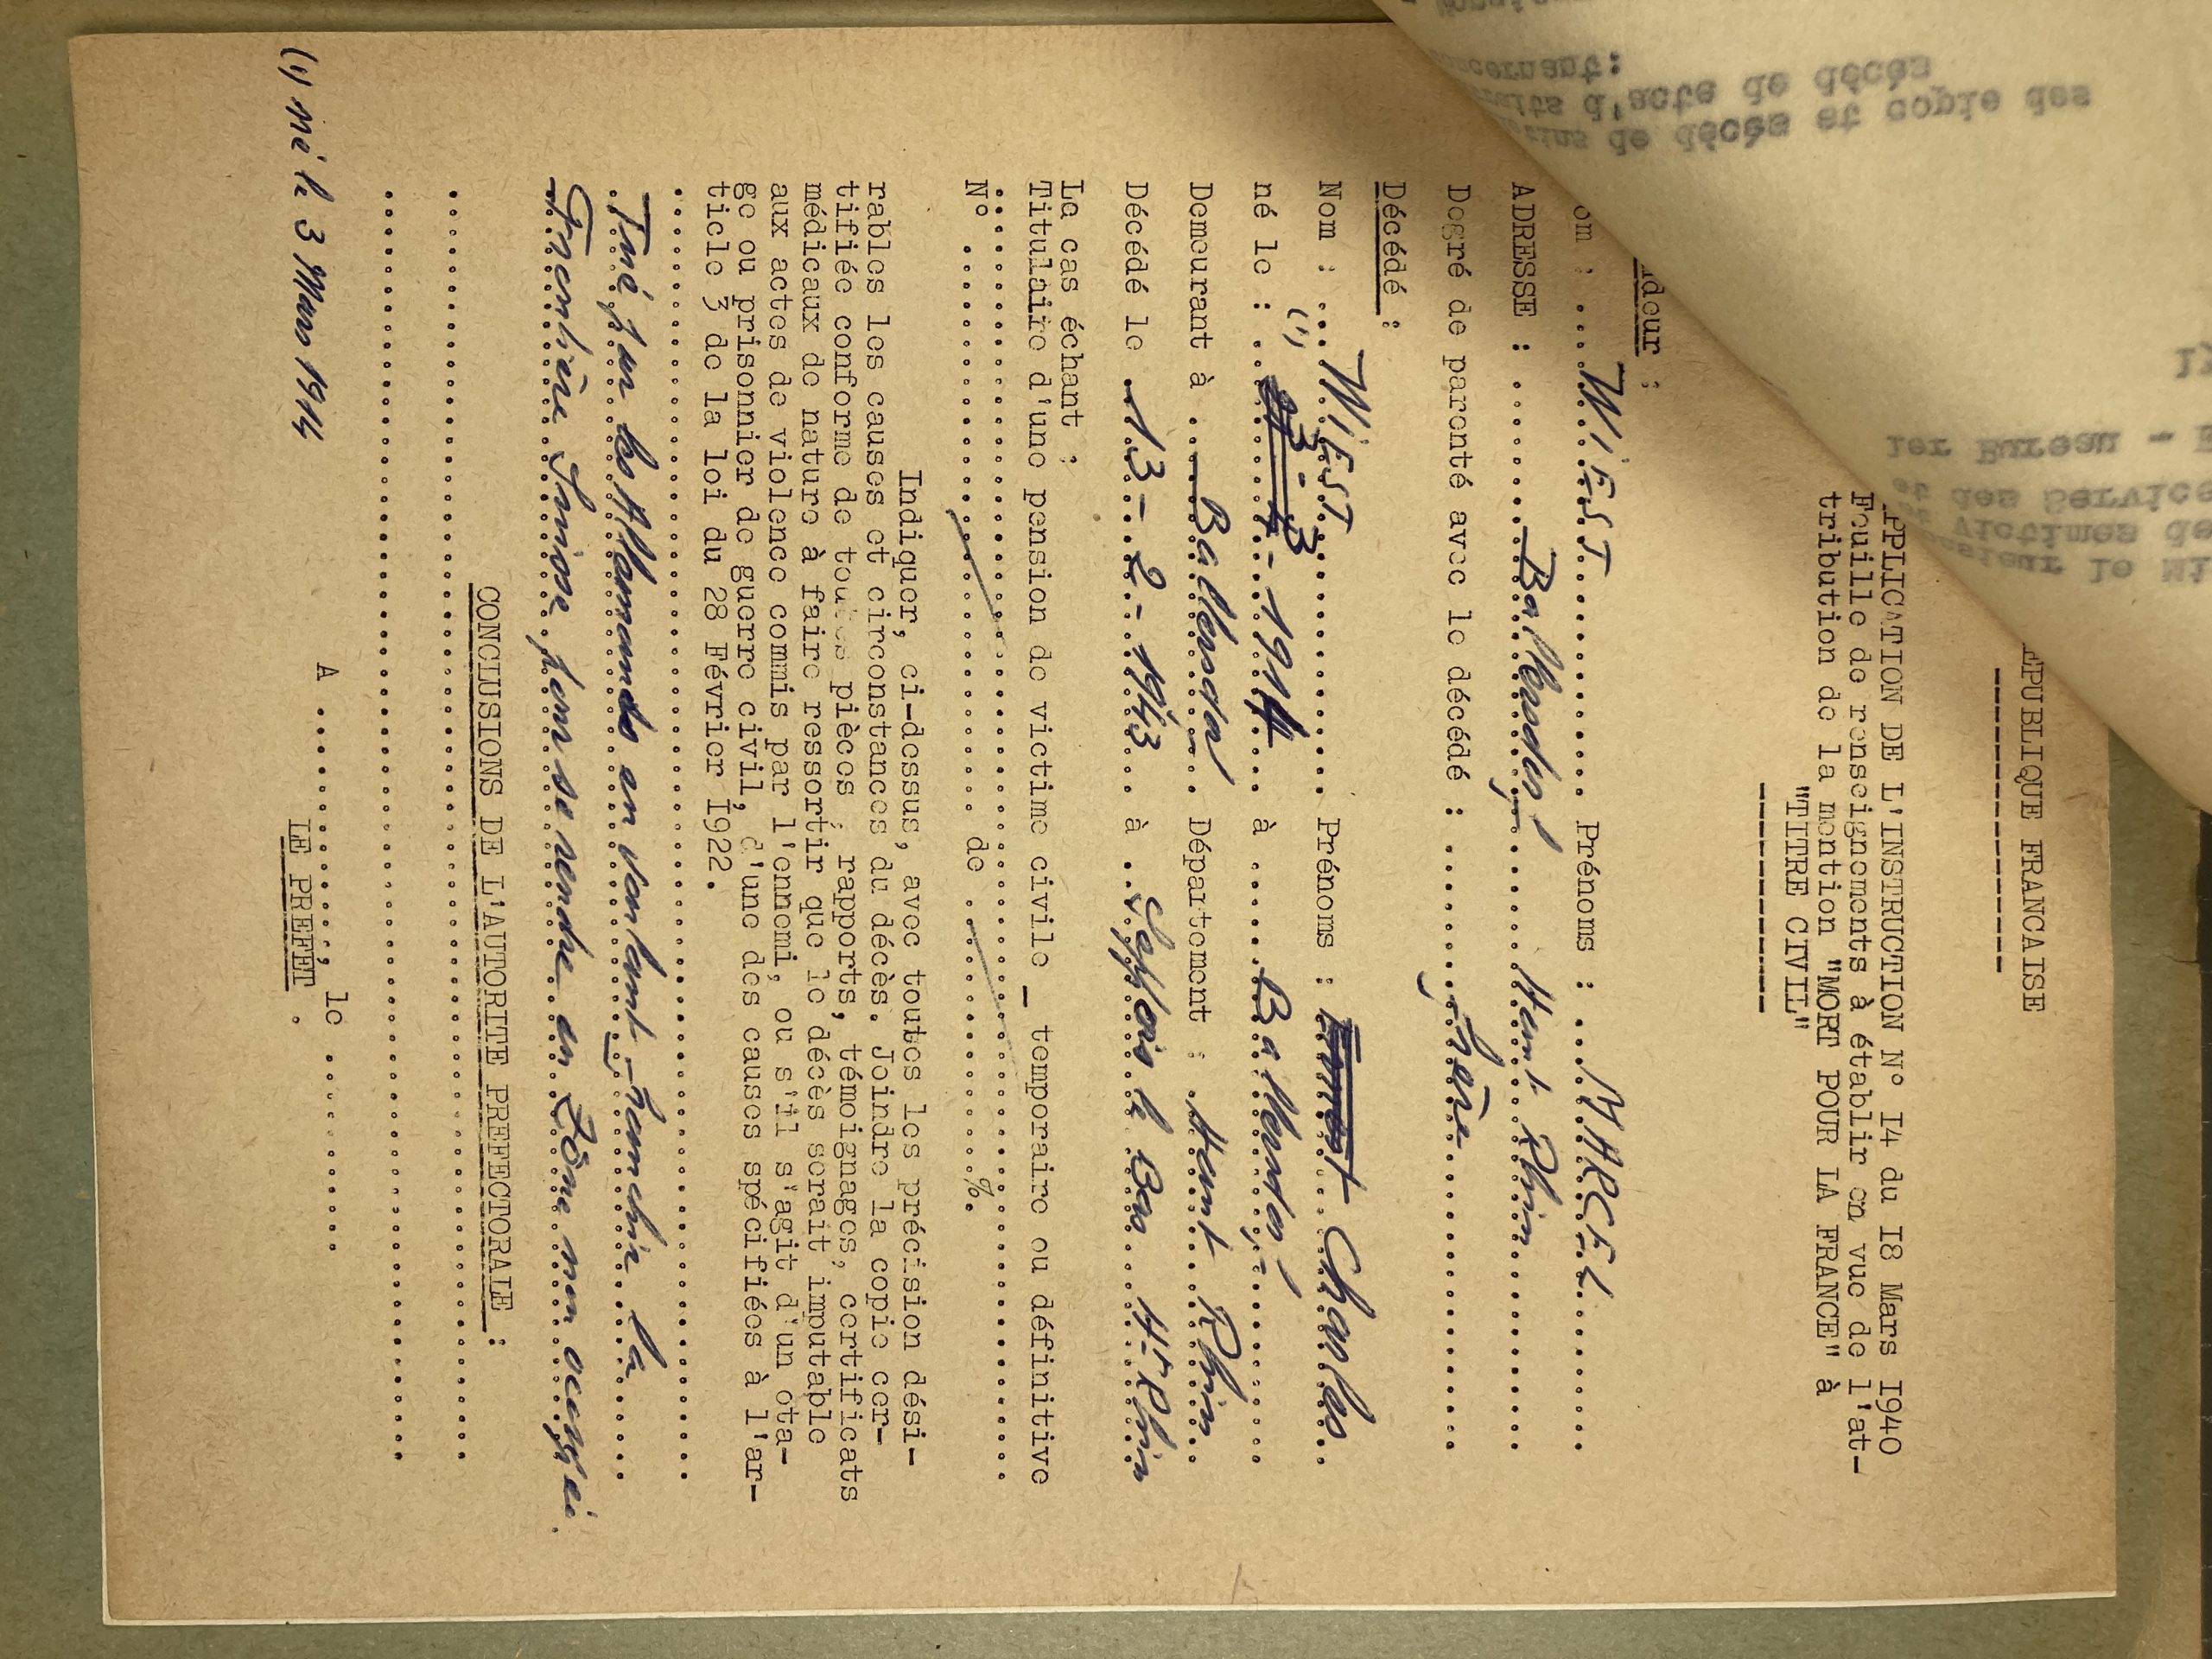 EPUBLIQUE FRANCAISE
PPLICATION DE L'INSTRUCTION N° I4 du I8 Mars I940
Feuille de renseignements à établir en vue de l'at-
tribution de la mention "MORT POUR LA FRANCE" à
"TITRE CIVIL"
ndeur :
om : WIEST Prénoms : MARCEL
ADRESSE : Ballersdorf Haut Rhin
Degré de parenté avec le décédé : frère
Décédé :
Nom : WIEST Prénoms : Ernest Charles
né le : (1) 23-4-1914 à Ballersdorf
Demeurant à Ballersdorf Département : Haut Rhin
Décédé le 13-2-1943 à Seppois le Bas Ht Rhin
Le cas échant :
Titulaire d'une pension de victime civile _ temporaire ou définitive
N° de %.
Indiquer, ci-dessus, avec toutes les précision dési-
rables les causes et circonstances du décès. Joindre la copie cer-
tifiée conforme de toutes pièces ; rapports, témoignages, certificats
médicaux de nature à faire ressortir que le décès serait imputable
aux actes de violence commis par l'ennemi, ou s'il s'agit d'un ota-
ge ou prisonnier de guerre civil, d'une des causes spécifiées à l'ar-
ticle 3 de la loi du 28 Février I922.
Tué par les Allemands en voulant franchir la
Frontière Suisse pour se rendre en Zône non occupée.
CONCLUSIONS DE L'AUTORITE PREFECTORALE :
A , le
LE PREFET.
(1) né le 3 Mars 1914
1er Bureau -
et des Service
victimes de
sieur le Mi
tins de décès et copie des
raits d'acte de décès
ncernant: